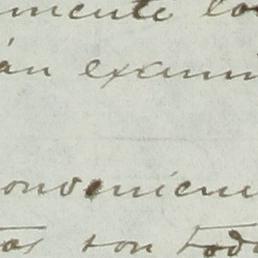 mente lo
án exami
convenien
tas son todo